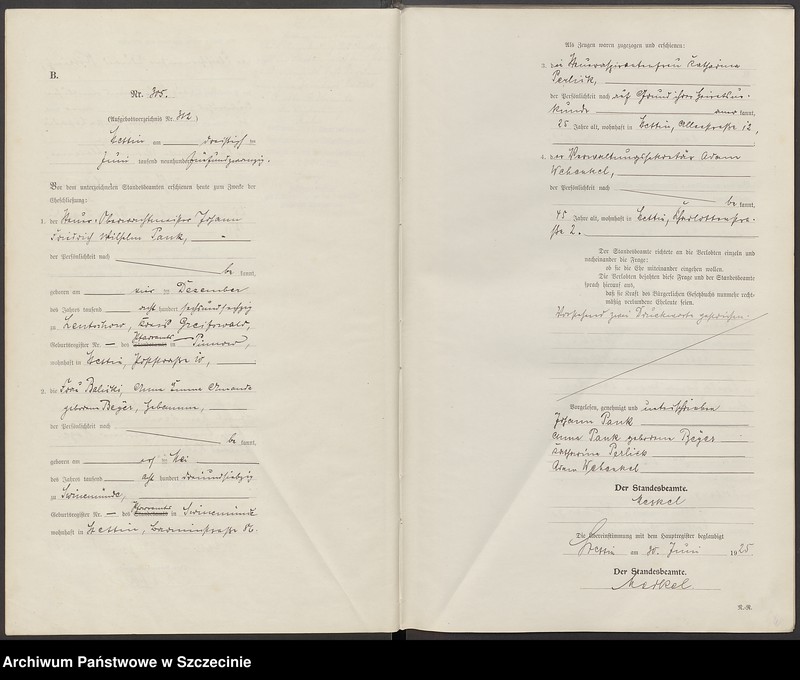 B.
Nr. 305.
(Aufgebotsverzeichnis Nr. 312)
Stettin am dreißigsten
Juni tausend neunhundert fünfundzwanzig.
Vor dem unterzeichneten Standesbeamten erschienen heute zum Zwecke der
Eheschließung:
1. der Steuer-Oberwachtmeister Johann
Friedrich Wilhelm Pank,
der Persönlichkeit nach
be kannt,
geboren am vier ten Dezember
des Jahres tausend acht hundert sechsundsechzig
zu Lentschow, Kreis Greifswald,
Geburtsregister Nr. — des Pfarramts in Pinnow,
wohnhaft in Stettin, Poststraße 10,
2. die Frau Anna Emma Amanda
geborene Beyer, Hebamme,
der Persönlichkeit nach
be kannt,
geboren am Mai
des Jahres tausend acht hundert dreiundsiebzig
zu Swinemünde,
Geburtsregister Nr. — des Pfarramts in Swinemünde
wohnhaft in Stettin, Barnimstraße
Als Zeugen waren zugezogen und erschienen:
3. die Katharina
Perlick,
der Persönlichkeit nach auf Grund ihrer Heiratsur-
kunde aner kannt,
25 Jahre alt, wohnhaft in Stettin, Alleestraße 12,
4. der Verwaltungssekretär Adam
Wehenkel,
der Persönlichkeit nach
be kannt,
45 Jahre alt, wohnhaft in Stettin, Charlottenstra-
ße 2.
Der Standesbeamte richtete an die Verlobten einzeln und
nacheinander die Frage:
ob sie die Ehe miteinander eingehen wollen.
Die Verlobten bejahten diese Frage und der Standesbeamte
sprach hierauf aus,
daß sie kraft des Bürgerlichen Gesetzbuchs nunmehr recht-
mäßig verbundene Eheleute seien.
Vorstehend zwei Druckworte gestrichen.
Vorgelesen, genehmigt und unterschrieben
Johann Pank
Anna Pank geborene Beyer
Katharina Perlick
Adam Wehenkel
Der Standesbeamte.
Merkel
Die Übereinstimmung mit dem Hauptregister beglaubigt
Stettin am 30. Juni 1925
Der Standesbeamte.
Merkel
R.-R.
Archiwum Państwowe w Szczecinie